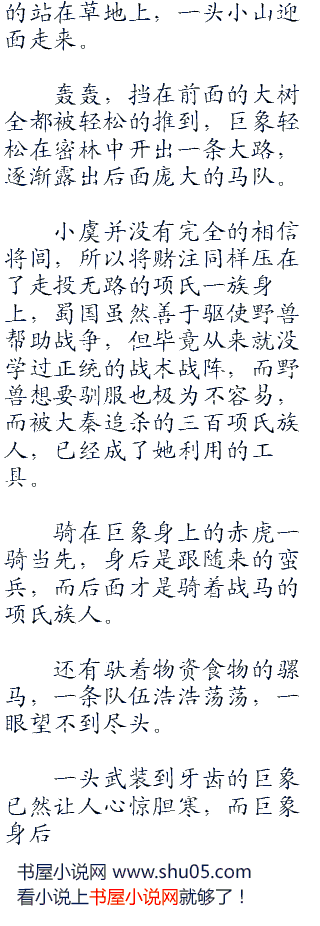 的站在草地上，一头小山迎
面走来。
轰轰，挡在前面的大树
全都被轻松的推到，巨象轻
松在密林中开出一条大路，
逐渐露出后面庞大的马队。
小虞并没有完全的相信
将闾，所以将赌注同样压在
了走投无路的项氏一族身
上，蜀国虽然善于驱使野兽
帮助战争，但毕竟从来就没
学过正统的战术战阵，而野
兽想要驯服也极为不容易，
而被大秦追杀的三百项氏族
人，已经成了她利用的工
具。
骑在巨象身上的赤虎一
骑当先，身后是跟随来的蛮
兵，而后面才是骑着战马的
项氏族人。
还有驮着物资食物的骡
马，一条队伍浩浩荡荡，一
眼望不到尽头。
一头武装到牙齿的巨象
已然让人心惊胆寒，而巨象
身后
书屋小说网 www.shu05.com
看小说上书屋小说网就够了！